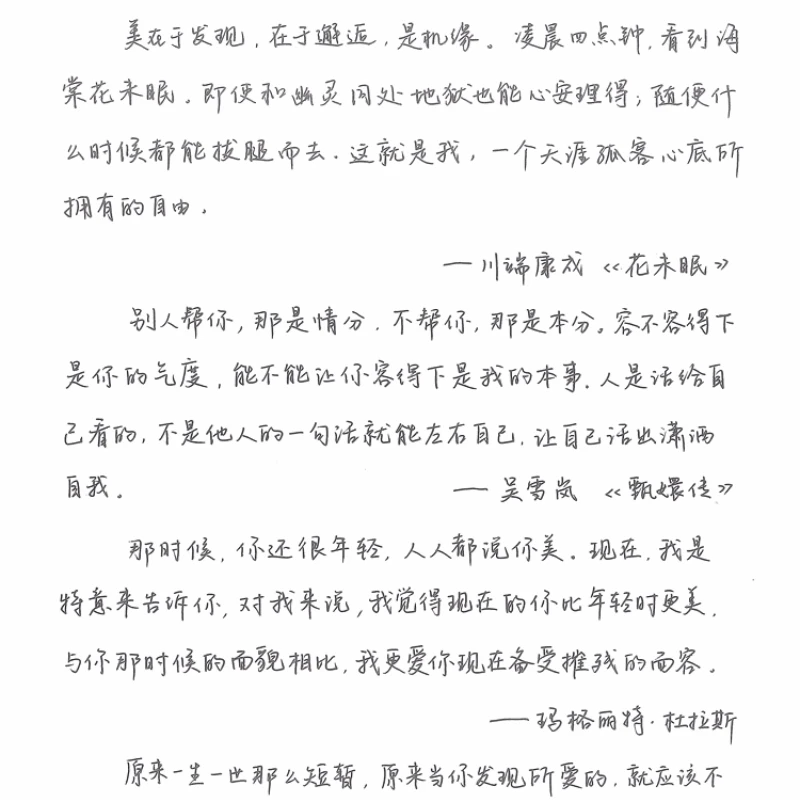 美在于发现，在于邂逅，是机缘。凌晨四点钟，看到海
棠花未眠。即便和幽灵同处地狱也能心安理得；随便什
么时候都能拔腿而去．这就是我，一个天涯孤客心底所
拥有的自由．
—川端康成《花未眠》
别人帮你，那是情分．不帮你，那是本分。容不容得下
是你的气度，能不能让你容得下是我的本事．人是活给自
己看的，不是他人的一句话就能左右自己．让自己活出潇洒
自我。 —吴雪岚《甄嬛传》
那时候，你还很年轻，人人都说你美。现在，我是
特意来告诉你，对我来说，我觉得现在的你比年轻时更美．
与你那时候的面貌相比，我更爱你现在备受摧残的面容。
—玛格丽特·杜拉斯
原来一生一世那么短暂，原来当你发现所爱的，就应该不